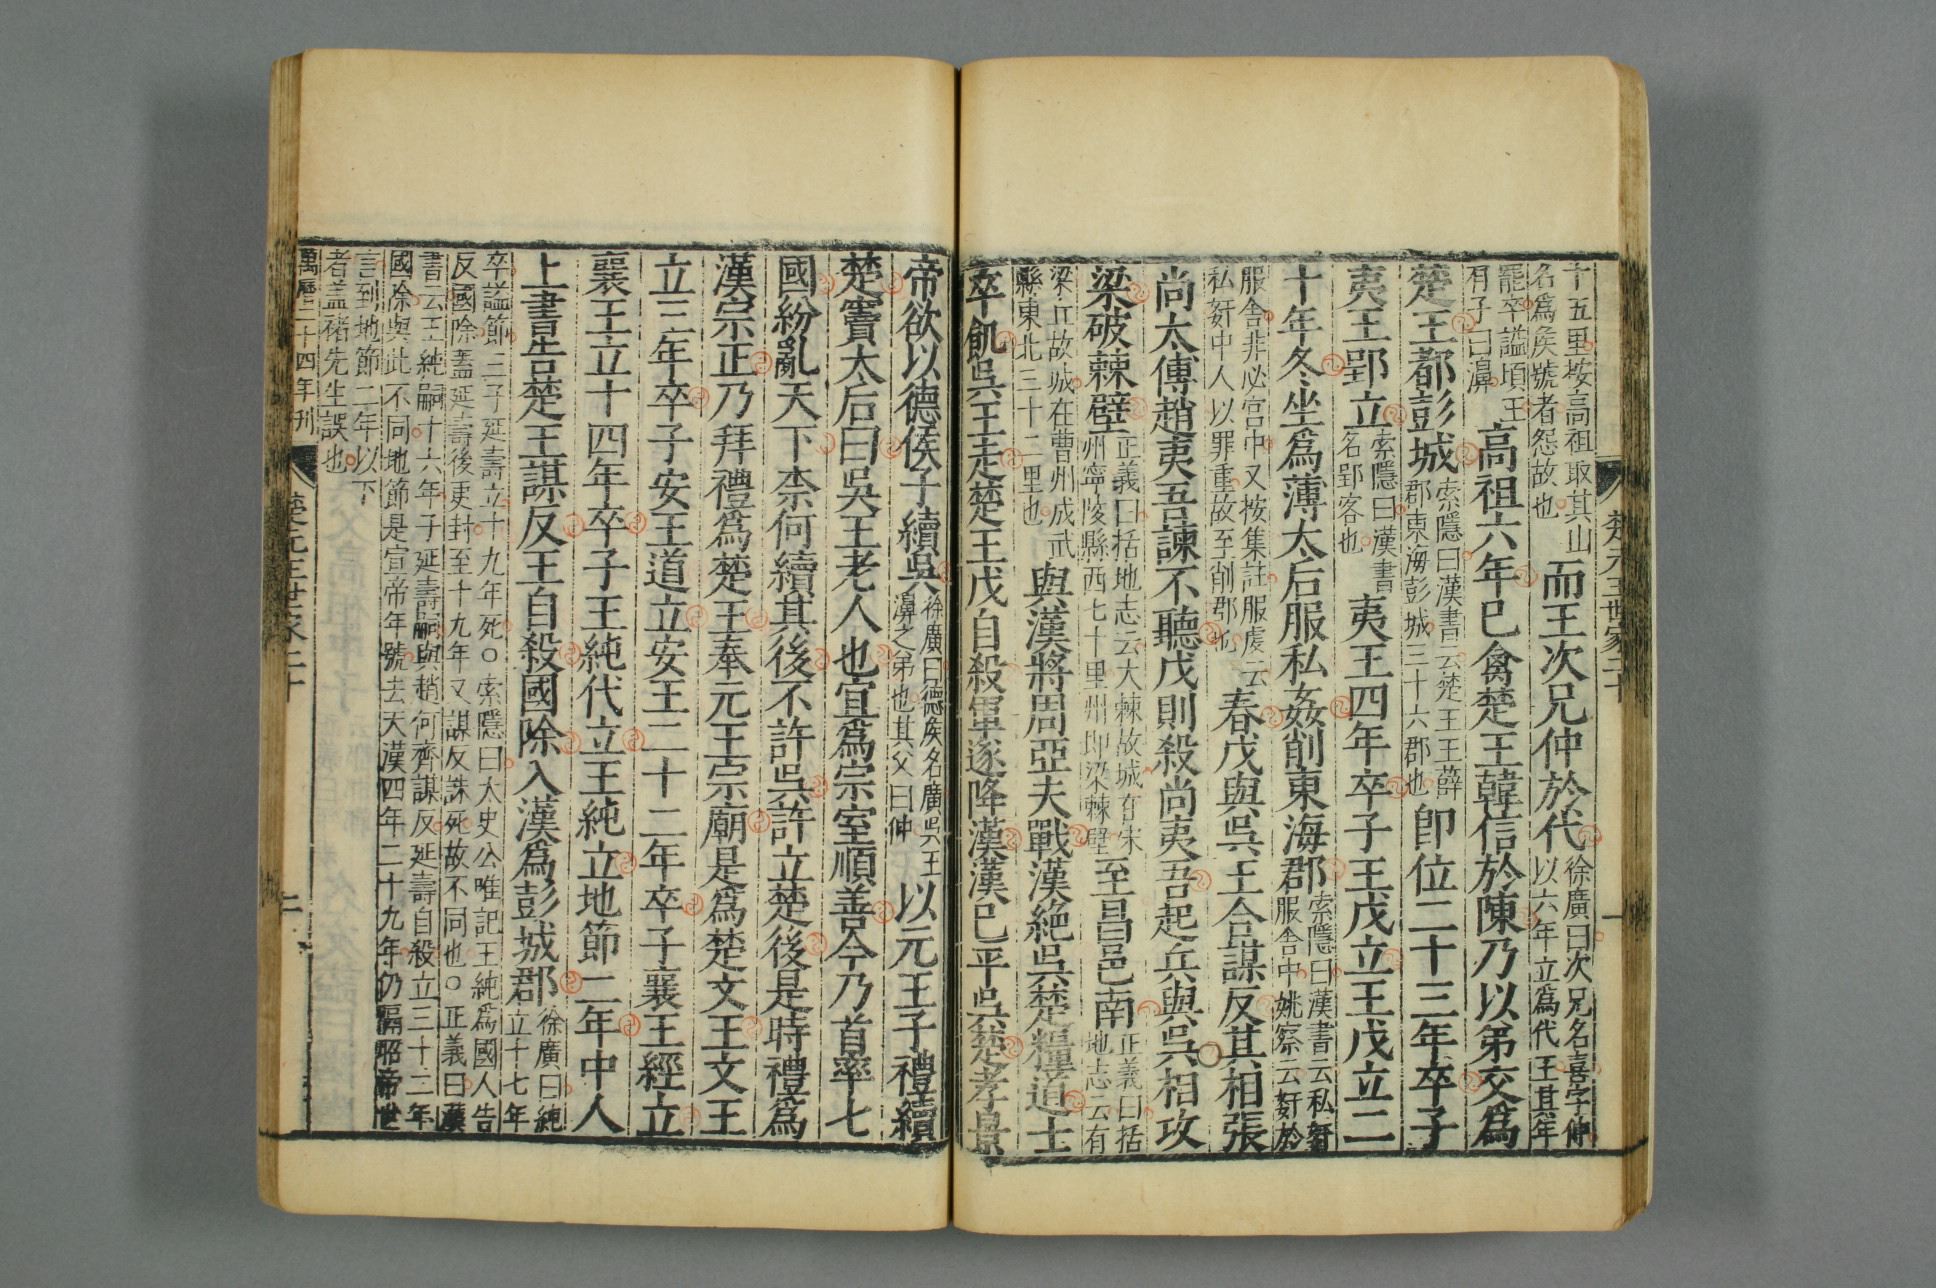 十五里按高祖取其山
名爲侯號者怨故也
而王次兄仲於代
徐廣曰次兄名喜字仲
以六年立爲代王其年
罷卒謚頃王
有子曰濞
高祖六年已禽楚王韓信於陳乃以弟交爲
楚王都彭城
索隱曰漢書云楚王王薛
郡東海彭城三十六郡也
即位二十三年卒子
夷王郢立
索隱曰漢書
名郢客也
夷王四年卒子王戊立王戊立二
十年冬坐爲薄太后服私姦削東海郡
索隱曰漢書云私姧
服舍中姚察云姧於
服舍非必宫中又按集註服虔云
私姧中人以罪重故至削郡也
春戊與吳王合謀反其相張
尚太傅趙夷吾諫不聽戊則殺尚夷吾起兵與吳相攻
梁破棘壁
正義曰括地志云大棘故城在宋
州寧陵縣西七十里州即梁棘壁
至昌邑南
正義曰括
地志云有
梁丘故城在曹州成武
縣東北三十二里也
與漢將周亞夫戰漢絶吳楚糧道士
卒飢吳王走楚王戊自殺軍遂降漢漢已平吳楚孝景
楚元王世家二十
一
帝欲以德侯子續吳
徐廣曰德侯名廣吳王
濞之弟也其父曰仲
以元王子禮續
楚竇太后曰吳王老人也宜爲宗室順善今乃首率七
國紛亂天下柰何續其後不許吳許立楚後是時禮爲
漢宗正乃拜禮爲楚王奉元王宗廟是爲楚文王文王
立三年卒子安王道立安王二十二年卒子襄王經立
襄王立十四年卒子王純代立王純立地節二年中人
上書告楚王謀反王自殺國除入漢爲彭城郡
徐廣曰純
立十七年
卒謚節王子延壽立十九年死○索隱曰太史公唯記王純爲國人告
反國除蓋延壽後更封至十九年又謀反誅死故不同也○正義曰漢
書云王純嗣十六年子延壽嗣與趙何齊謀反延壽自殺立三十二年
國除與此不同地節是宣帝年號去天漢四年二十九年仍隔昭帝世
言到地節二年以下
者蓋褚先生誤也
萬曆二十四年刊
楚元王世家二十
二